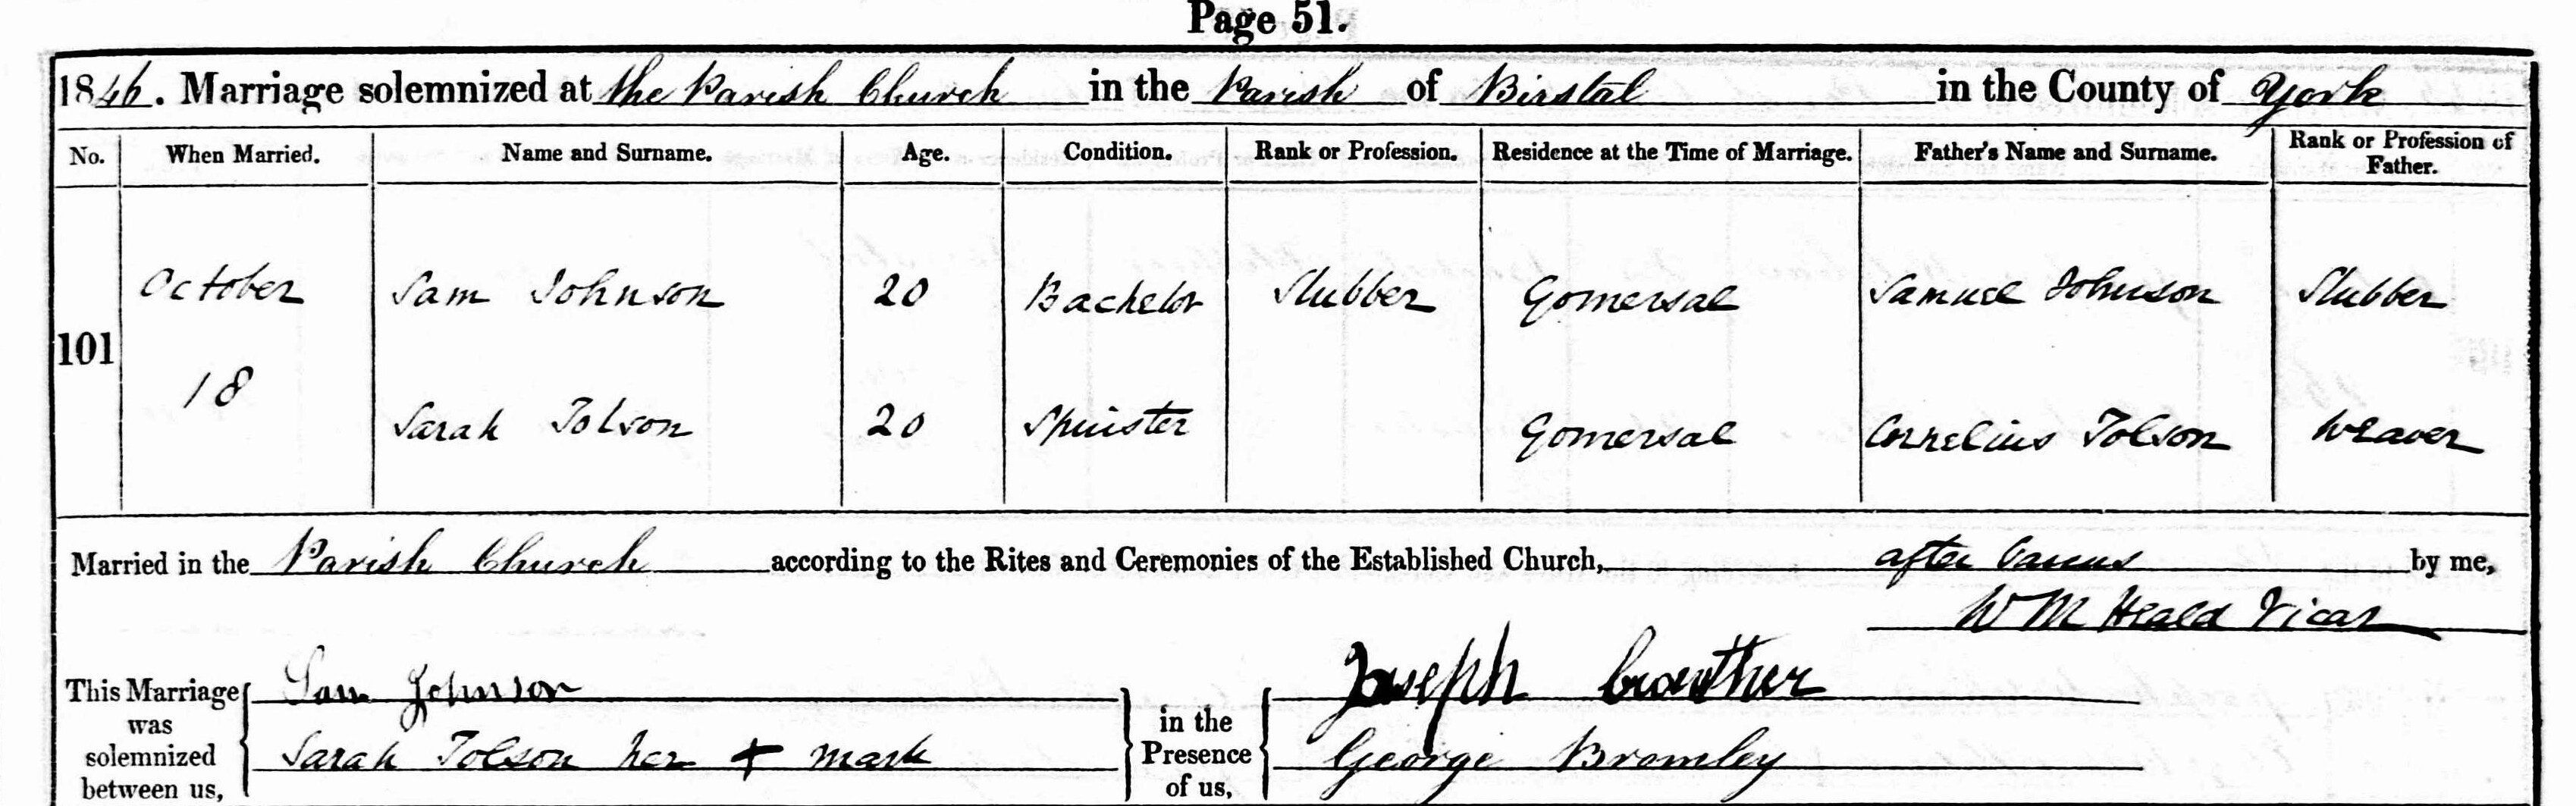 Page 51.
1846. Marriage solemnized at the Parish Church in the Parish of Birstal in the County of York
No. When Married. Name and Surname. Age. Condition. Rank or Profession. Residence at the Time of Marriage. Father's Name and Surname. Rank or Profession of Father.
October Sam Johnson 20 Bachelor Slubber Gomersal Samuel Johnson Slubber
101
18
Sarah Tolson 20 Spinster Gomersal Cornelius Tolson Weaver
Married in the Parish Church according to the Rites and Ceremonies of the Established Church, after banns by me,
W M Heald Vicar
This Marriage was solemnized between us,
Sam Johnson
Sarah Tolson her + mark
in the Presence of us,
Joseph Crowther
George Bromley